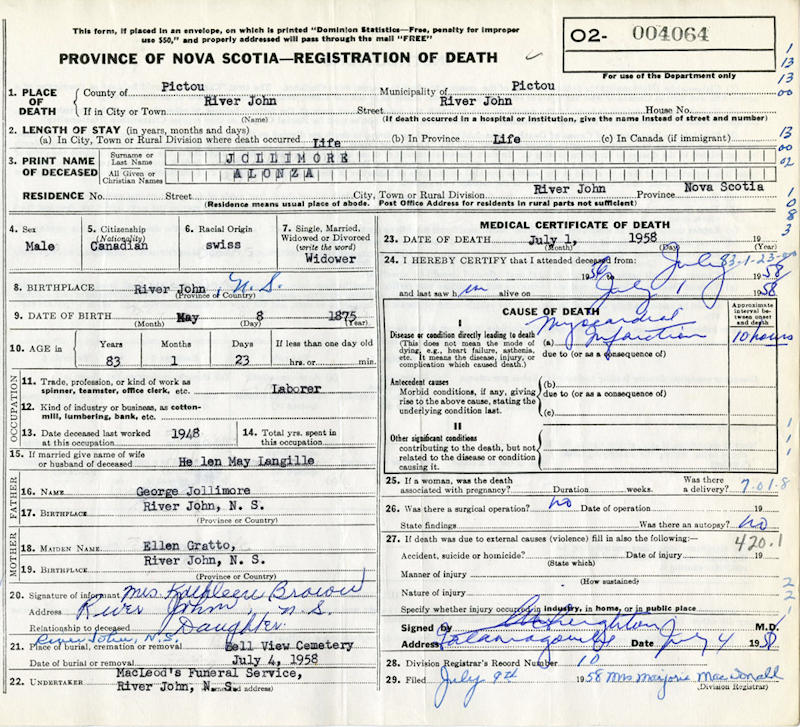 This form, if placed in an envelope, on which is printed "Dominion Statistics—Free, penalty for improper
use $50," and properly addressed will pass through the mail "FREE"
PROVINCE OF NOVA SCOTIA—REGISTRATION OF DEATH
O2- 004064
For use of the Department only
1. PLACE OF DEATH
County of Pictou Municipality of Pictou
If in City or Town River John Street River John House No.
(Name) (If death occurred in a hospital or institution, give the name instead of street and number)
2. LENGTH OF STAY (in years, months and days)
(a) In City, Town or Rural Division where death occurred Life (b) In Province Life (c) In Canada (if immigrant)
3. PRINT NAME OF DECEASED
Surname or Last Name JOLLIMORE
All Given or Christian Names ALONZA
RESIDENCE No. Street City, Town or Rural Division River John Province Nova Scotia
(Residence means usual place of abode. Post Office Address for residents in rural parts not sufficient)
4. Sex
Male
5. Citizenship
(Nationality)
Canadian
6. Racial Origin
swiss
7. Single, Married,
Widowed or Divorced
(write the word)
Widower
8. BIRTHPLACE River John, N.S.
(Province or Country)
9. DATE OF BIRTH May 8 1875
(Month) (Day) (Year)
10. AGE in
Years Months Days If less than one day old
83 1 23 hrs. or min.
OCCUPATION
11. Trade, profession, or kind of work as
spinner, teamster, office clerk, etc. Laborer
12. Kind of industry or business, as cotton-
mill, lumbering, bank, etc.
13. Date deceased last worked
at this occupation 1948
14. Total yrs. spent in
this occupation
15. If married give name of wife
or husband of deceased He len May Langille
FATHER
16. NAME George Jollimore
17. BIRTHPLACE River John, N. S.
(Province or Country)
MOTHER
18. MAIDEN NAME Ellen Gratto,
19. BIRTHPLACE River John, N. S.
(Province or Country)
20. Signature of informant Mrs Kathleen Brown
Address River John, N.S.
Relationship to deceased Daughter
River John, N.S.
21. Place of burial, cremation or removal Bell View Cemetery
Date of burial or removal July 4, 1958
22. UNDERTAKER MacLeod's Funeral Service,
River John, N. S.
(Name and address)
MEDICAL CERTIFICATE OF DEATH
23. DATE OF DEATH July 1, 1958 19
(Month) (Day) (Year)
83-1-23-
24. I HEREBY CERTIFY that I attended deceased from:
19 56 to July 1958
and last saw him alive on July 1 1958
CAUSE OF DEATH
Approximate
interval be-
tween onset
and death
I
Disease or condition directly leading to death
(This does not mean the mode of
dying, e.g., heart failure, asthenia,
etc. It means the disease, injury, or
complication which caused death.)
(a) Myocardial Infarction 10 hours
due to (or as a consequence of)
Antecedent causes
Morbid conditions, if any, giving
rise to the above cause, stating the
underlying condition last.
(b)
due to (or as a consequence of)
(c)
II
Other significant conditions
contributing to the death, but not
related to the disease or condition
causing it.
25. If a woman, was the death
associated with pregnancy? Duration weeks. Was there
a delivery?
7-01-8
26. Was there a surgical operation? no Date of operation 19
State findings Was there an autopsy? no
27. If death was due to external causes (violence) fill in also the following:—
420.1
Accident, suicide or homicide? Date of injury 19
(State which)
Manner of injury
(How sustained)
Nature of injury
Specify whether injury occurred in industry, in home, or in public place
Signed by Creighton M.D.
Address Tatamagouche Date July 4 1958
28. Division Registrar's Record Number 10
29. Filed July 9th 1958 Mrs Marjorie MacDonald
(Division Registrar)
1
13
13
00
13
00
02
1
0
8
3
1
1
1
2
2
1